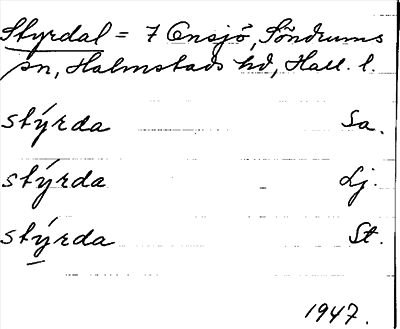 Styrdal = 7 Ensjö, Söndrums
sn, Halmstads hd, Hall. l.
stýrda Sa.
stýrda Lj.
stýrda St.
1947.